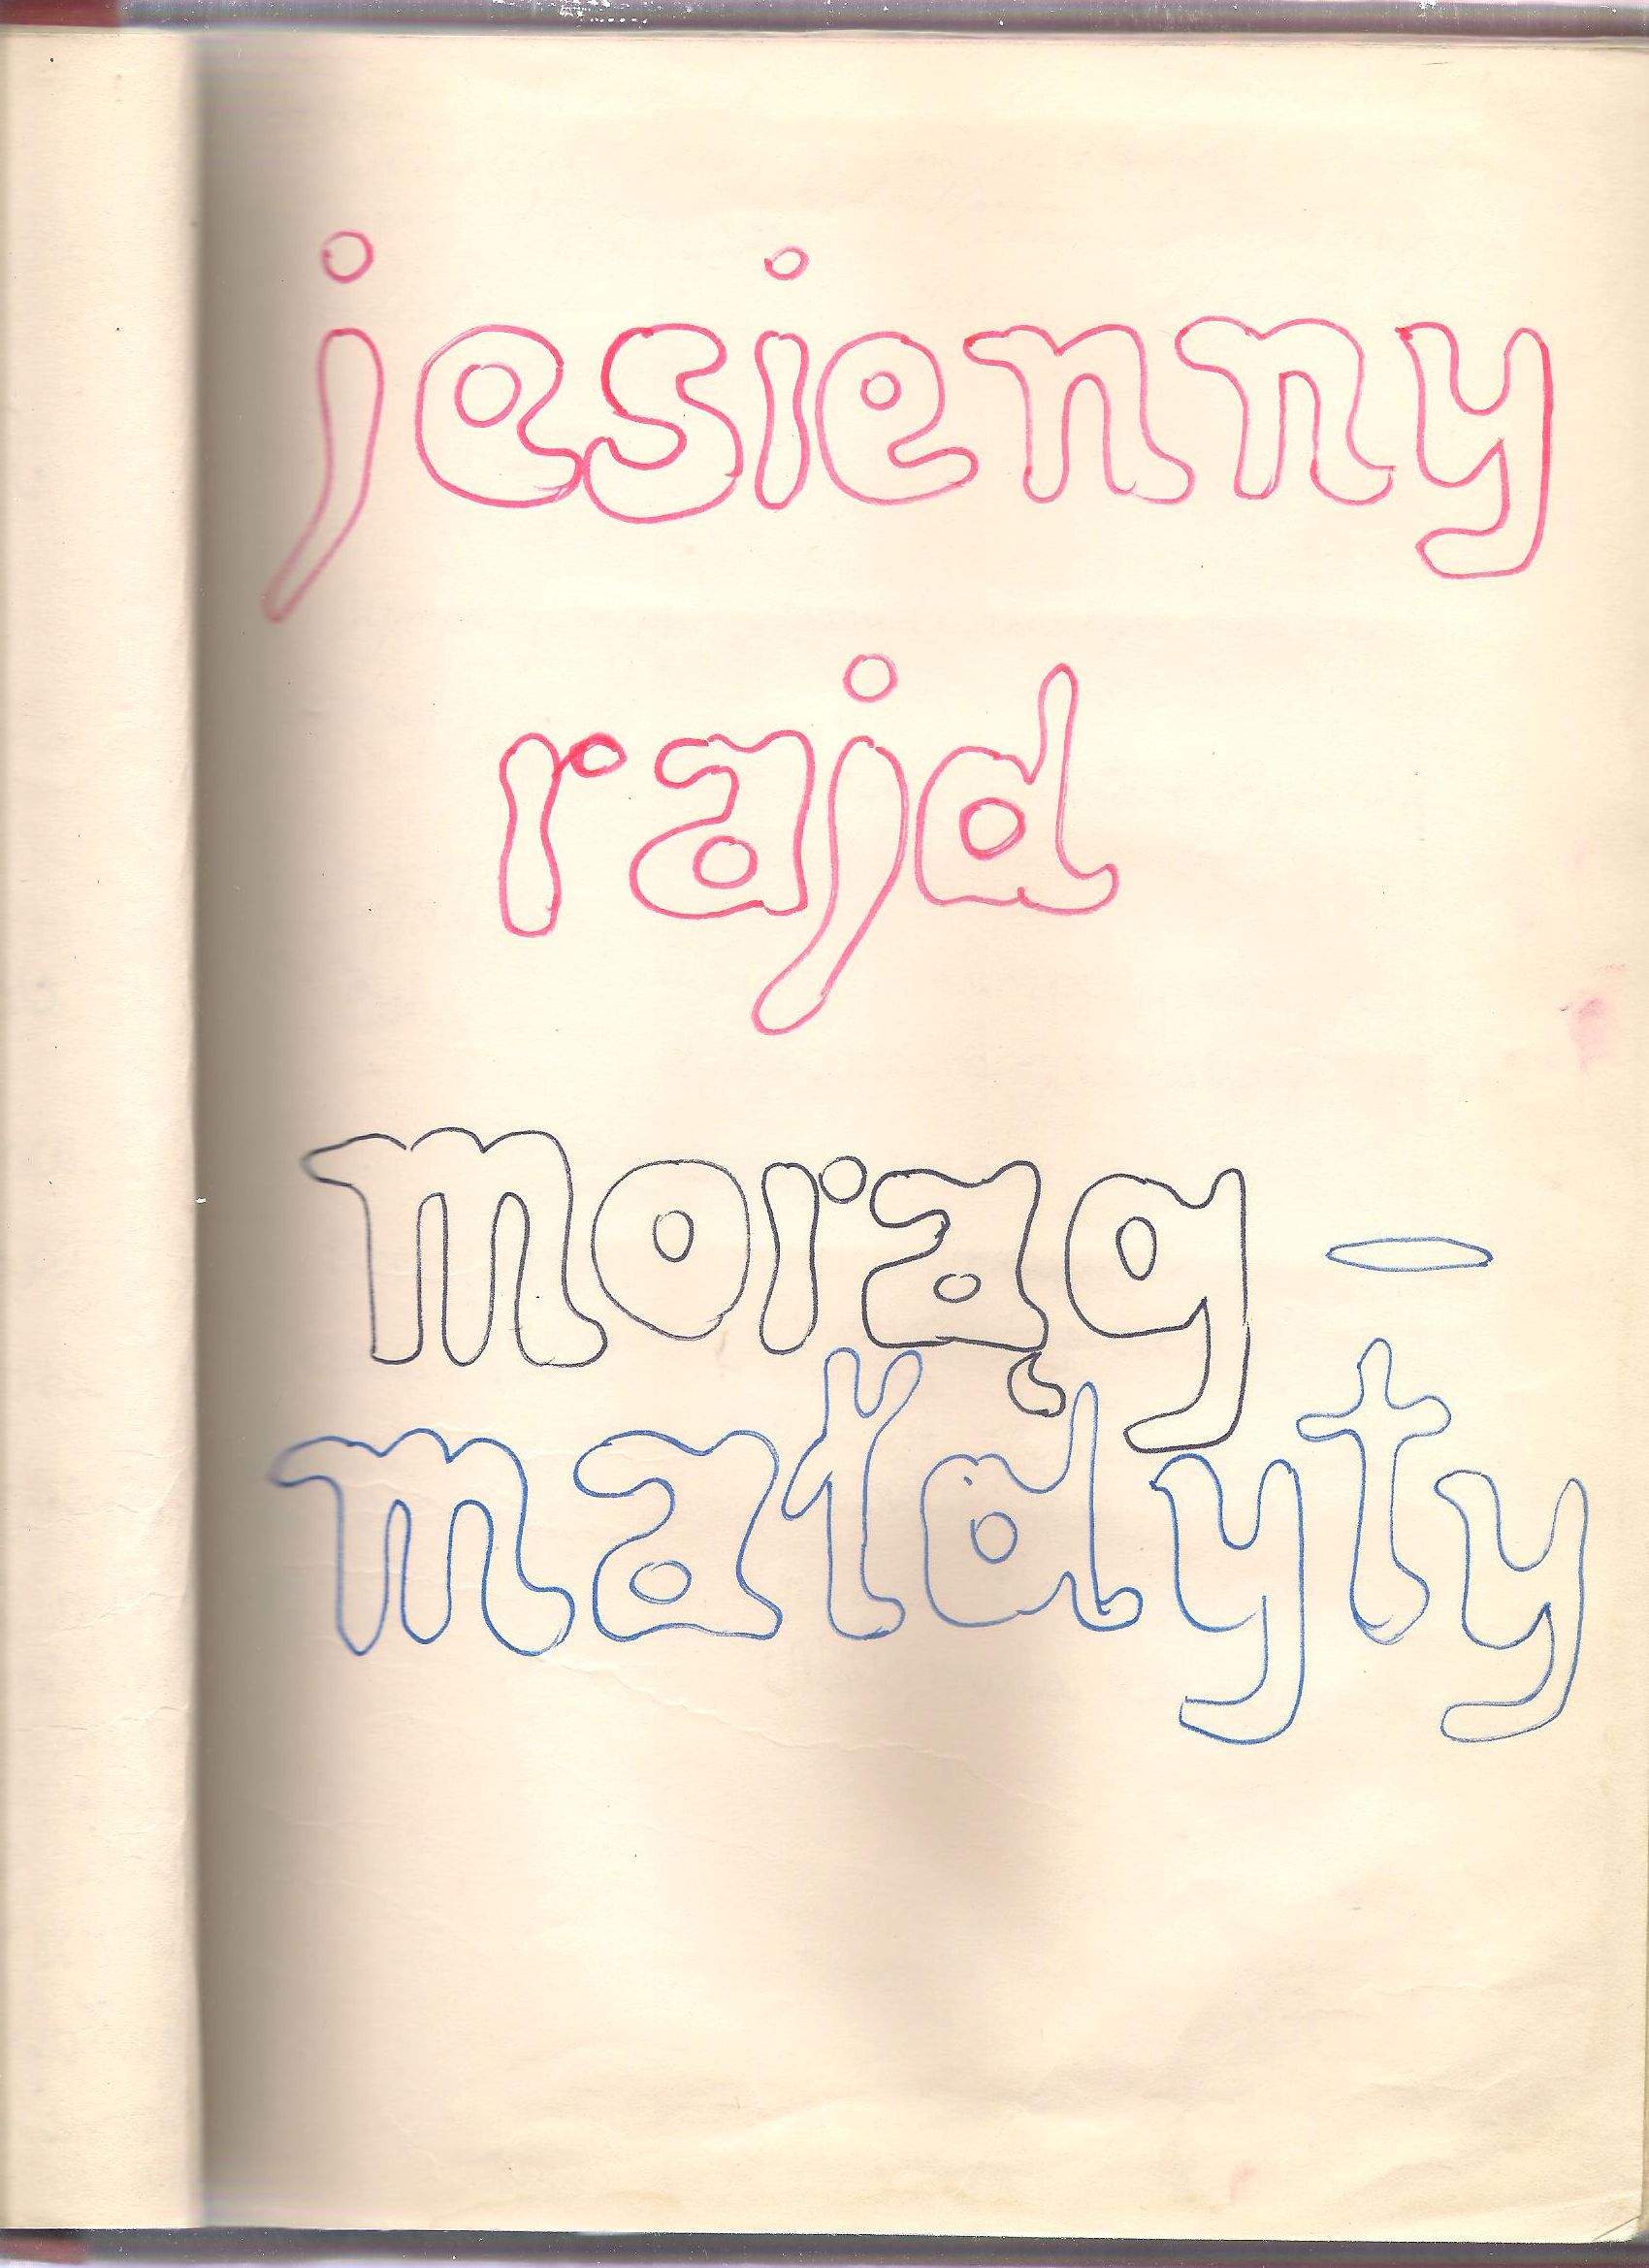 jesienny
rajd
morąg -
małdyty